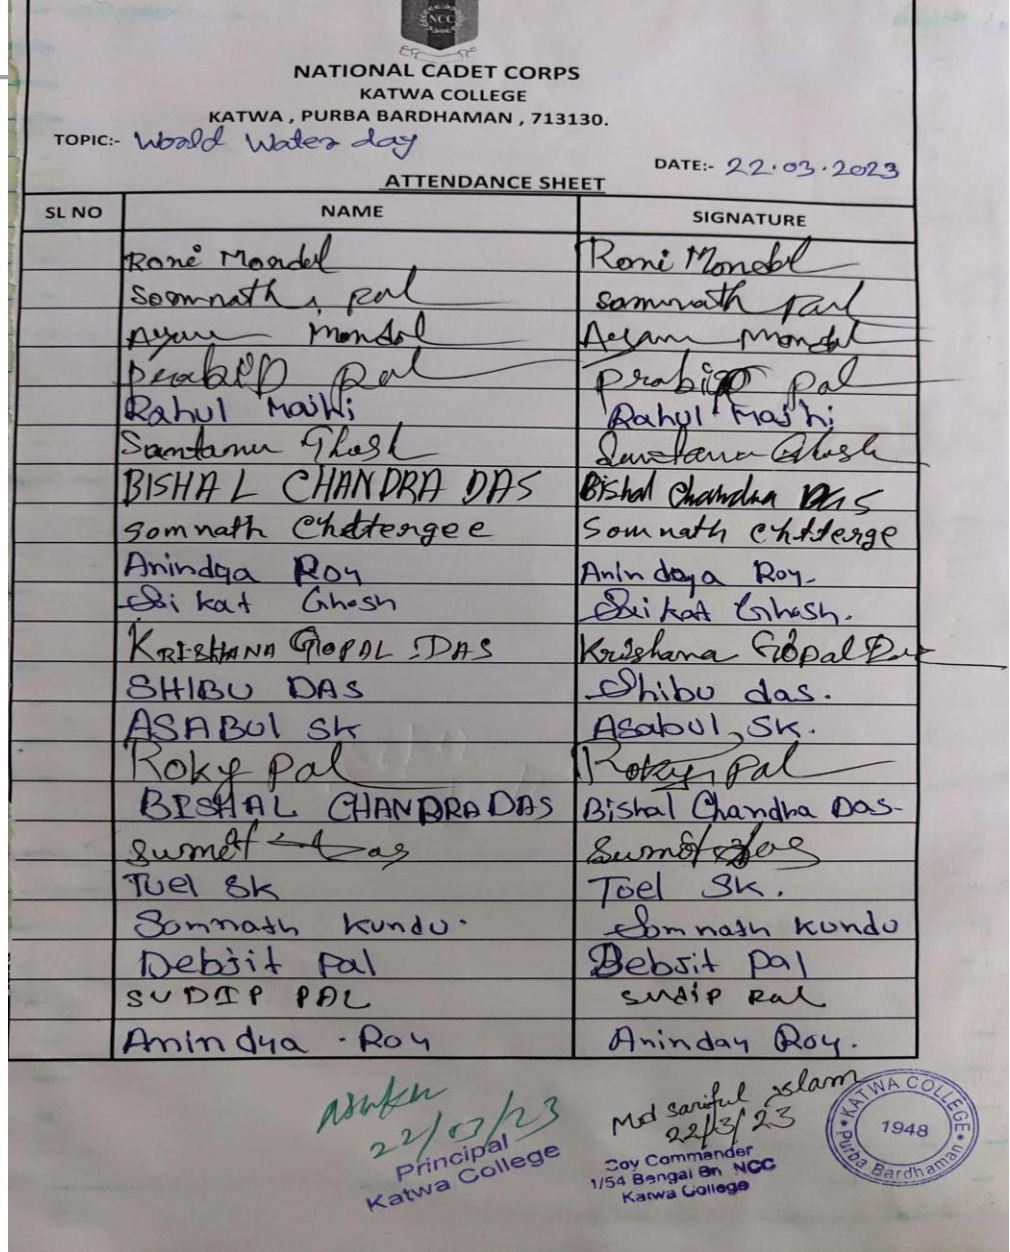 NCC
NATIONAL CADET CORPS
KATWA COLLEGE
KATWA , PURBA BARDHAMAN , 713130.
TOPIC:- World Water day
DATE:- 22.03.2023
ATTENDANCE SHEET
SL NO NAME SIGNATURE
Roni Mondal Roni Mondal
Somnath pal Somnath Pal
Ayan Mondal Ayan Mondal
Prabir pal Prabir pal
Rahul Majhi Rahul Majhi
Santanu Ghosh Santanu Ghosh
BISHAL CHANDRA DAS Bishal Chandra DAS
Somnath Chttergee Somnath Chtterge
Anindya Roy Anindaya Roy.
Saikat Ghosh Saikat Ghosh.
KRISHANA GOPAL DAS Krishana Gopal Das
SHIBU DAS Shibu das.
ASABUL SK Asabul SK.
Roky Pal Roky pal
BISHAL CHANDRA DAS Bishal Chandra Das-
Sumet Das Sumet Das
TUEL SK TUEL SK.
Somnath Kundu. Somnath Kundu
Debjit pal Debjit pal
SUDIP PAL Sudip Pal
Anindya . Roy Aninday Roy.
22/03/23
Principal
Katwa College
Md Sariful Islam
22/3/23
Coy Commander
1/54 Bengal Bn NCC
Katwa College
KATWA COLLEGE
1948
Purba Bardhaman